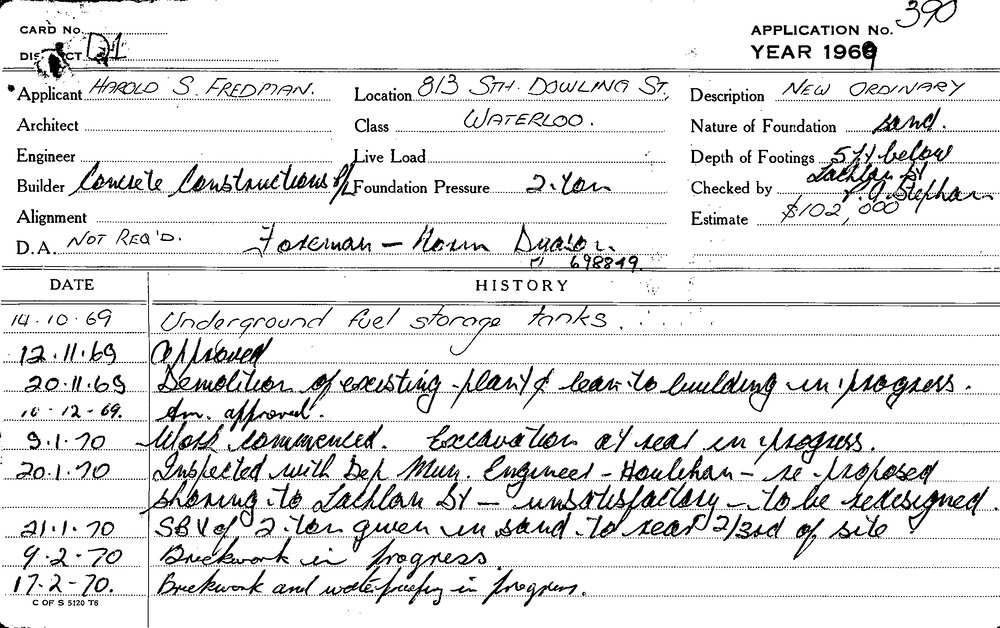 CARD No.
APPLICATION No. 390
DISTRICT D1
YEAR 1969
Applicant HAROLD S. FREDMAN. Location 813 STH. DOWLING ST, Description NEW ORDINARY
Architect Class WATERLOO. Nature of Foundation sand.
Engineer Live Load Depth of Footings 5ft below
Lachlan St
Builder Concrete Constructions P/L Foundation Pressure 2.ton Checked by P.J. Stephan
Alignment Estimate $102,000
D.A. NOT REQ'D. Foreman - Norm
698849.
DATE HISTORY
14.10.69 Underground fuel storage tanks.
12.11.69 approved
20.11.69 Demolition of existing plant & lean-to building in progress.
10-12-69. Am. approved.
9.1.70 Work commenced. Excavation at rear in progress.
20.1.70 Inspected with Dep Mun. Engineer - Houlihan - re proposed
shoring to Lachlan St - unsatisfactory - to be redesigned.
21.1.70 SBV of 2 ton given in sand to rear 2/3rd of site
9-2-70 Brickwork in progress.
17-2-70. Brickwork and waterproofing in progress.
C OF S 5120 T6